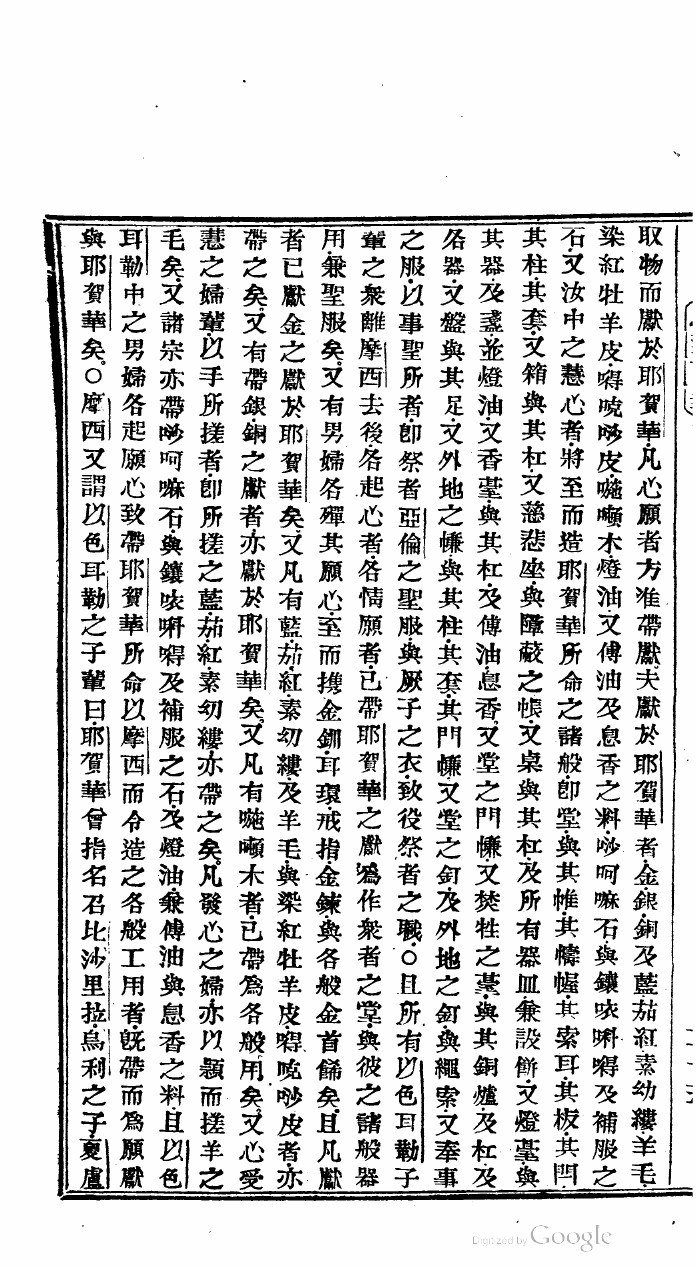 取物而獻於耶賀華凡心願者方准帶獻夫獻於耶賀華者金銀銅及藍茄紅素幼縷羊毛
染紅牡羊皮㘔唍唦皮𠸄㘔木燈油又傅油及息香之料唦呵嘛石與鑲咴唎㘔及補服之
石又汝中之慧心者將至而造耶賀華所命之諸般卽堂與其帷其幬幄其索耳其板其閂
其柱其套又箱與其杠又慈悲座與障蔽之帳又桌與其杠及所有器皿兼設餅又燈臺與
其器及盞並燈油又香臺與其杠及傅油息香又堂之門㡘又焚牲之臺與其銅爐及杠及
各器又盤與其足又外地之㡘與其柱其套其門㡘又堂之釘及外地之釘與繩索又奉事
之服以事聖所者卽祭者亞倫之聖服與厥子之衣致役祭者之職○且所有以色耳勒子
輩之衆離摩西去後各起心者各情願者已帶耶賀華之獻爲作衆者之堂與彼之諸般器
用兼聖服矣又有男婦各殫其願心至而攜金鈿耳環戒指金鍊與各般金首餙矣且凡獻
者已獻金之獻於耶賀華矣又凡有藍茄紅素幼縷及羊毛與染紅牡羊皮㘔唍唦皮者亦
帶之矣又有帶銀銅之獻者亦獻於耶賀華矣又凡有木者已帶爲各般用矣又心受
慧之婦輩以手所搓者卽所搓之藍茄紅素幼縷亦帶之矣凡發心之婦亦以顒而搓羊之
毛矣又諸宗亦帶唦呵嘛石與鑲咴唎㘔及補服之石及燈油兼傅油與息香之料且以色
耳勒中之男婦各起願心致帶耶賀華所命以摩西而令造之各般工用者旣帶而爲願獻
與耶賀華矣○摩西又謂以色耳勒之子輩曰耶賀華曾指名召比沙里拉烏利之子夏盧
Digitized by Google